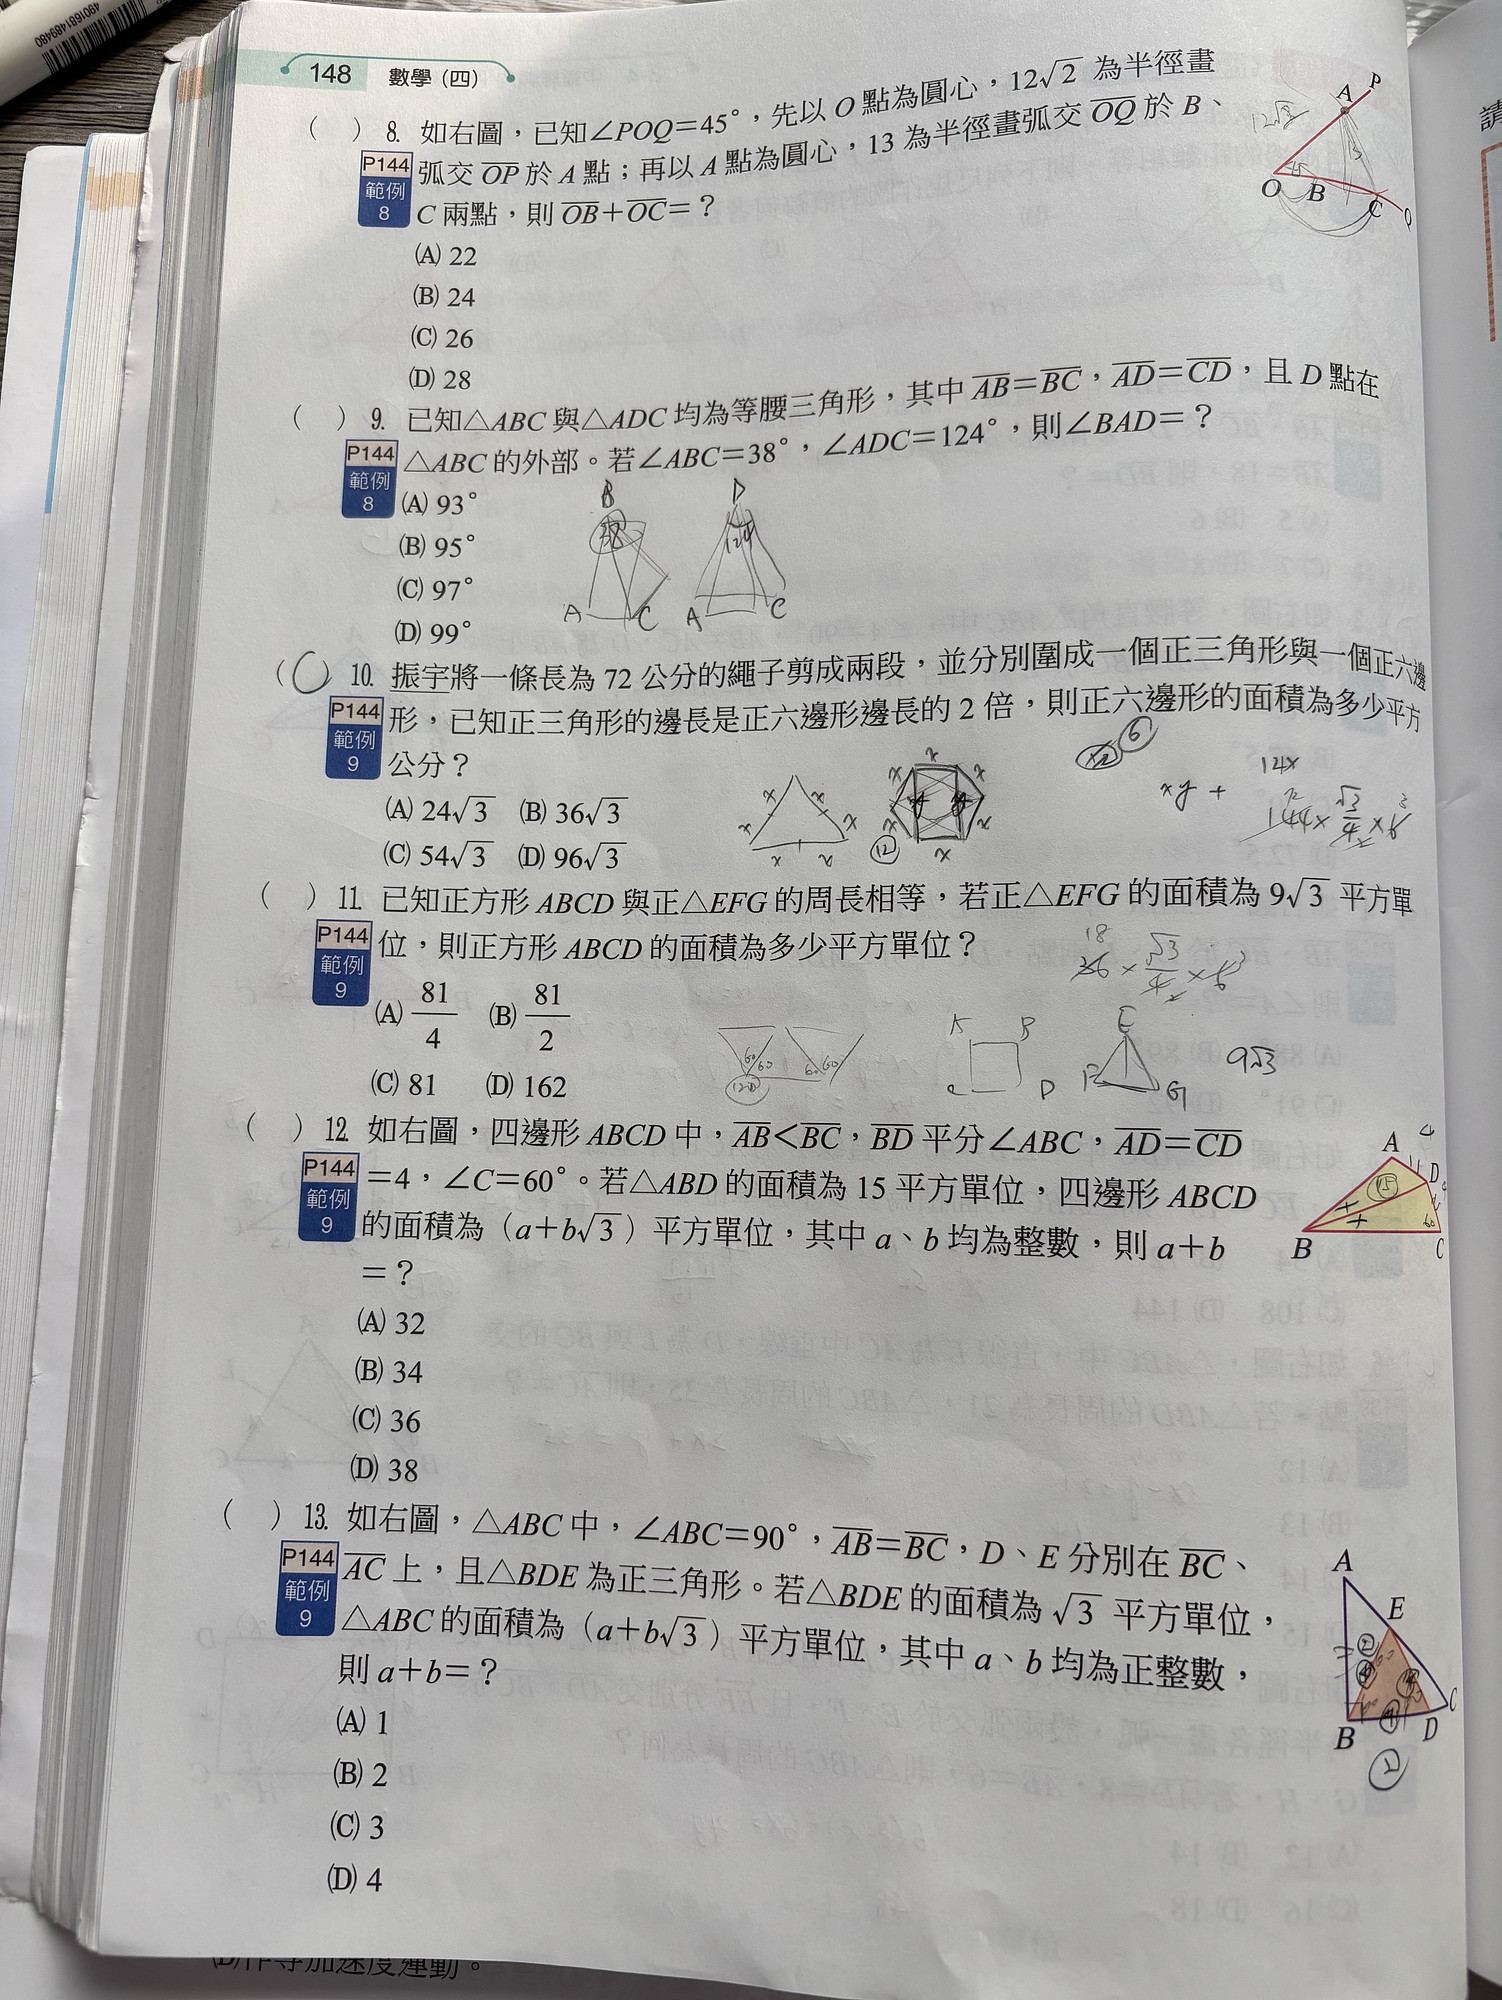 4901681489480
148 數學(四)
( ) 8. 如右圖，已知∠POQ＝45°，先以 O 點為圓心，12√2 為半徑畫
P144 範例 8
弧交 OP 於 A 點；再以 A 點為圓心，13 為半徑畫弧交 OQ 於 B、
C 兩點，則 OB＋OC＝？
A P
12√2
O B C Q
(A) 22
(B) 24
(C) 26
(D) 28
( ) 9. 已知△ABC 與△ADC 均為等腰三角形，其中 AB＝BC，AD＝CD，且 D 點在
P144 範例 8
△ABC 的外部。若∠ABC＝38°，∠ADC＝124°，則∠BAD＝？
(A) 93°
(B) 95°
(C) 97°
(D) 99°
B D
38 124
A C A C
(C) 10. 振宇將一條長為 72 公分的繩子剪成兩段，並分別圍成一個正三角形與一個正六邊
P144 範例 9
形，已知正三角形的邊長是正六邊形邊長的 2 倍，則正六邊形的面積為多少平方
公分？
(A) 24√3 (B) 36√3
(C) 54√3 (D) 96√3
6
12x
xy +
144×√3/4×6
x x x x x x
x x x x x x
12
( ) 11. 已知正方形 ABCD 與正△EFG 的周長相等，若正△EFG 的面積為 9√3 平方單
P144 範例 9
位，則正方形 ABCD 的面積為多少平方單位？
18
36×√3/4×6
(A) 81/4 (B) 81/2
(C) 81 (D) 162
60 60 60 60
120
A B
C D
E
F G
9√3
( ) 12. 如右圖，四邊形 ABCD 中，AB＜BC，BD 平分∠ABC，AD＝CD
P144 範例 9
＝4，∠C＝60°。若△ABD 的面積為 15 平方單位，四邊形 ABCD
的面積為（a＋b√3）平方單位，其中 a、b 均為整數，則 a＋b
＝？
A 4 D
15
60
B C
(A) 32
(B) 34
(C) 36
(D) 38
( ) 13. 如右圖，△ABC 中，∠ABC＝90°，AB＝BC，D、E 分別在 BC、
P144 範例 9
AC 上，且△BDE 為正三角形。若△BDE 的面積為 √3 平方單位，
△ABC 的面積為（a＋b√3）平方單位，其中 a、b 均為正整數，
則 a＋b＝？
A
E
B D C
2
(A) 1
(B) 2
(C) 3
(D) 4
(D)作等加速度運動。
請